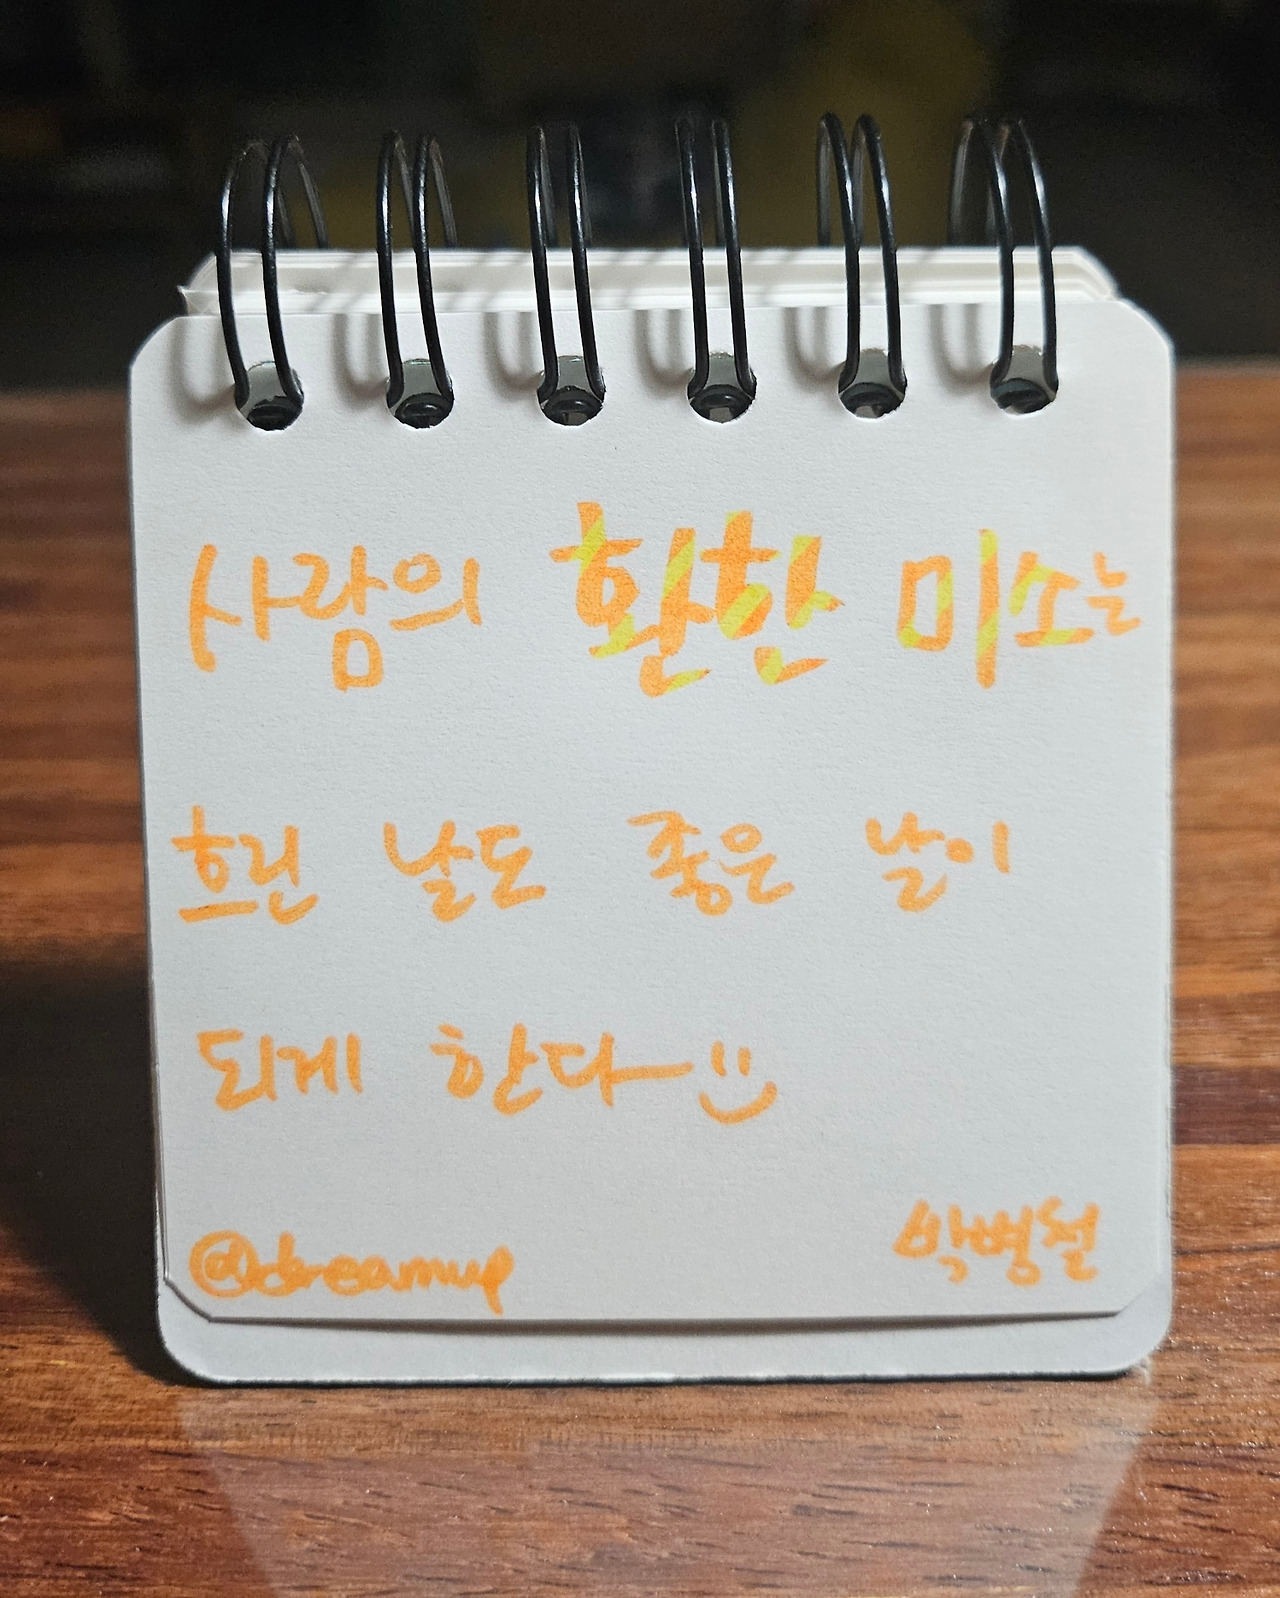 사람의 환한 미소는
흐린 날도 좋은 날이
되게 한다~
@dreamup
박병철